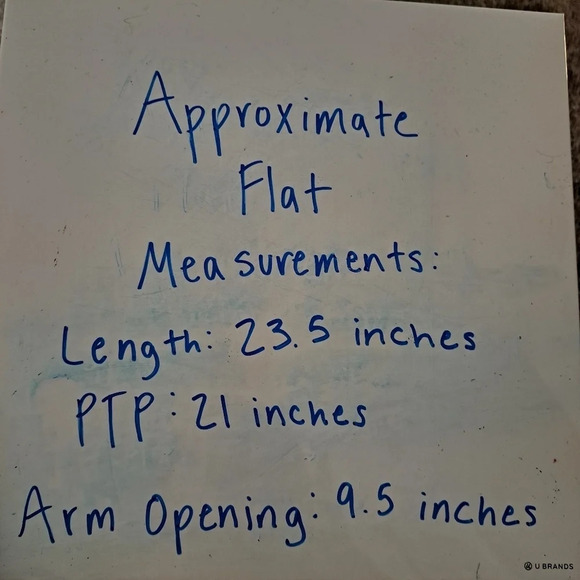 Approximate
Flat
Measurements:
Length: 23.5 inches
PTP: 21 inches
Arm Opening: 9.5 inches
U BRANDS